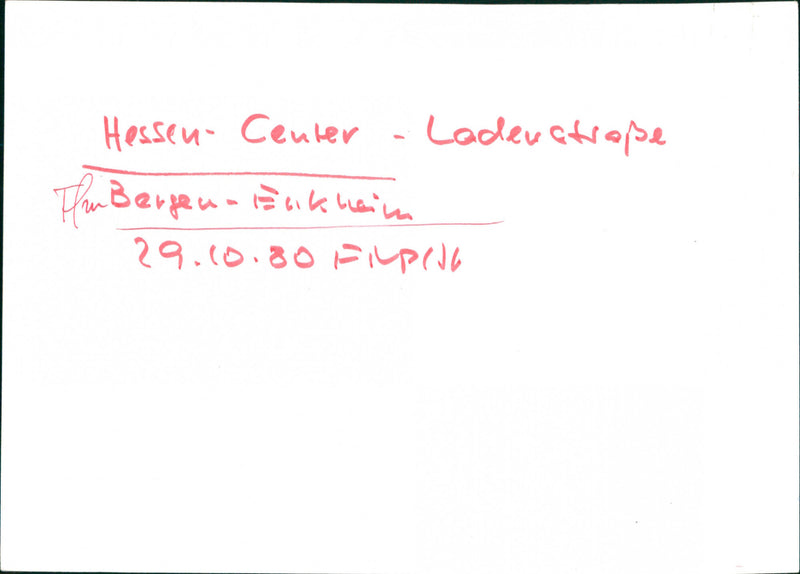 Hessen-Center - Ladenstraße
Ffm Bergen-Enkheim
29.10.80 FNP